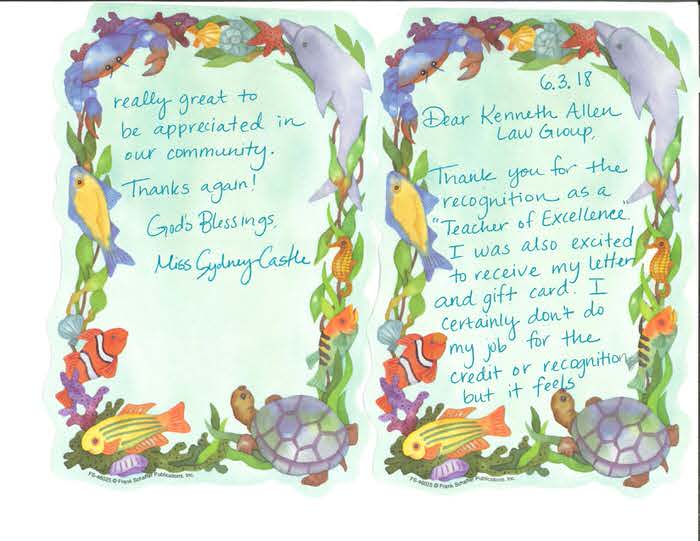 6.3.18
Dear Kenneth Allen
Law Group,
Thank you for the
recognition as a
"Teacher of Excellence."
I was also excited
to receive my letter
and gift card. I
certainly don't do
my job for the
credit or recognition
but it feels
FS-46025 © Frank Schaffer Publications, Inc.
really great to
be appreciated in
our community.
Thanks again!
God's Blessings,
Miss Sydney Castle
FS-46025 © Frank Schaffer Publications, Inc.